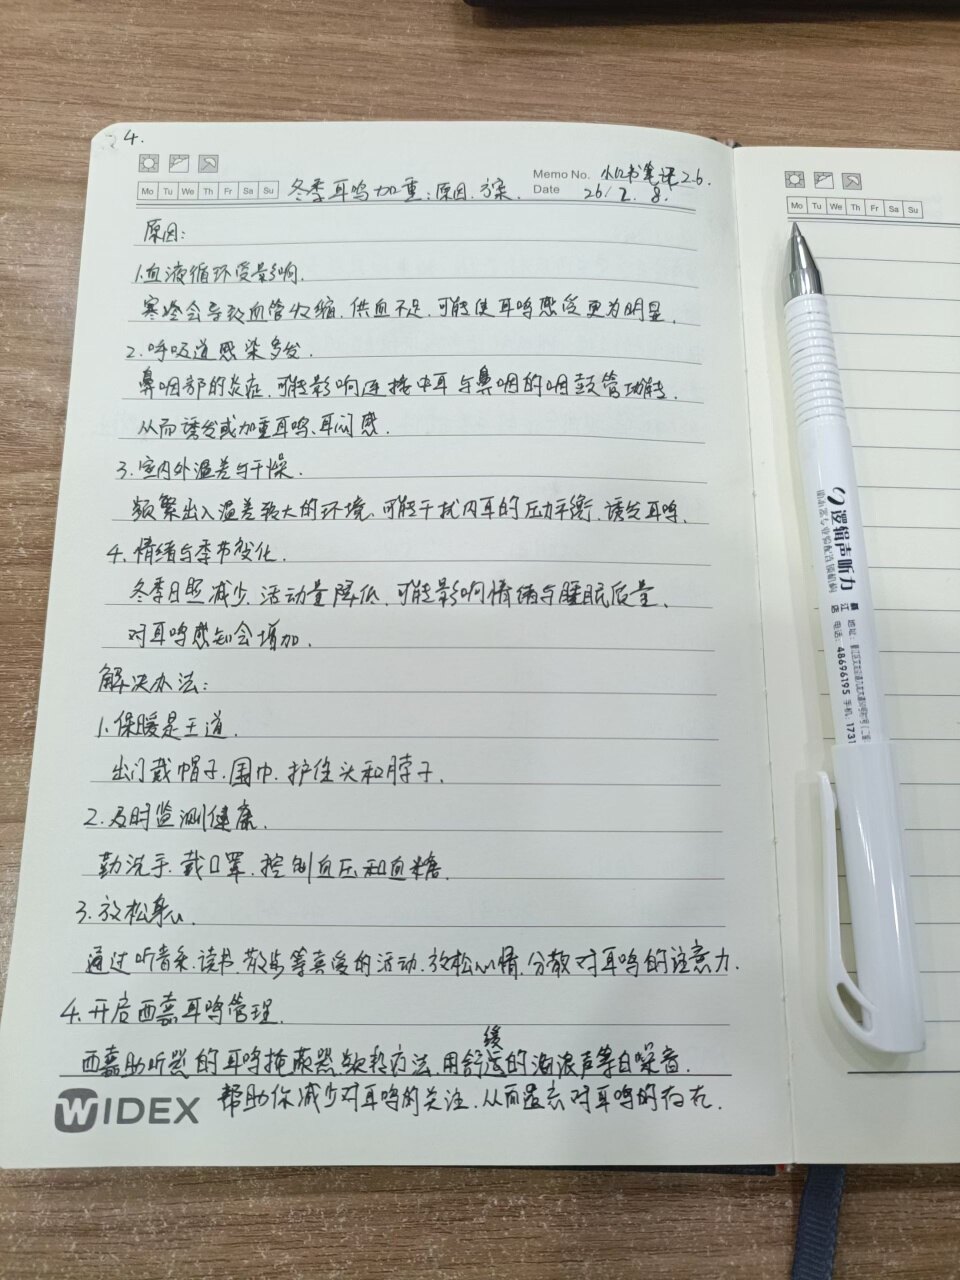 4.
Mo Tu We Th Fr Sa Su
冬季耳鸣加重:原因.方案.
Memo No. 小红书笔记26.
Date 26/2.8.
原因:
1.血液循环受影响.
寒冷会导致血管收缩.供血不足.可能使耳鸣感受更为明显.
2.呼吸道感染多发.
鼻咽部的炎症.可能影响连接中耳与鼻咽的咽鼓管功能.
从而诱发或加重耳鸣、耳闷感.
3.室内外温差与干燥.
频繁出入温差较大的环境、可能干扰内耳的压力平衡.诱发耳鸣.
4.情绪与季节变化.
冬季日照减少.活动量降低.可能影响情绪与睡眠质量.
对耳鸣感知会增加.
解决办法:
1.保暖是王道.
出门戴帽子.围巾.护住头和脖子.
2.及时监测健康.
勤洗手.戴口罩.控制血压和血糖.
3.放松身心.
通过听音乐.读书.散步等真爱的活动.放松心情.分散对耳鸣的注意力.
4.开启西嘉耳鸣管理.
西嘉助听器的耳鸣掩蔽器软和疗法.用舒缓的海浪声等白噪音.
帮助你减少对耳鸣的关注.从而忘对耳鸣的存在.
WIDEX
Mo Tu We Th Fr Sa Su
逻辑声听力
助听器专业验配连锁机构
店 电话:48696195 手机:1731